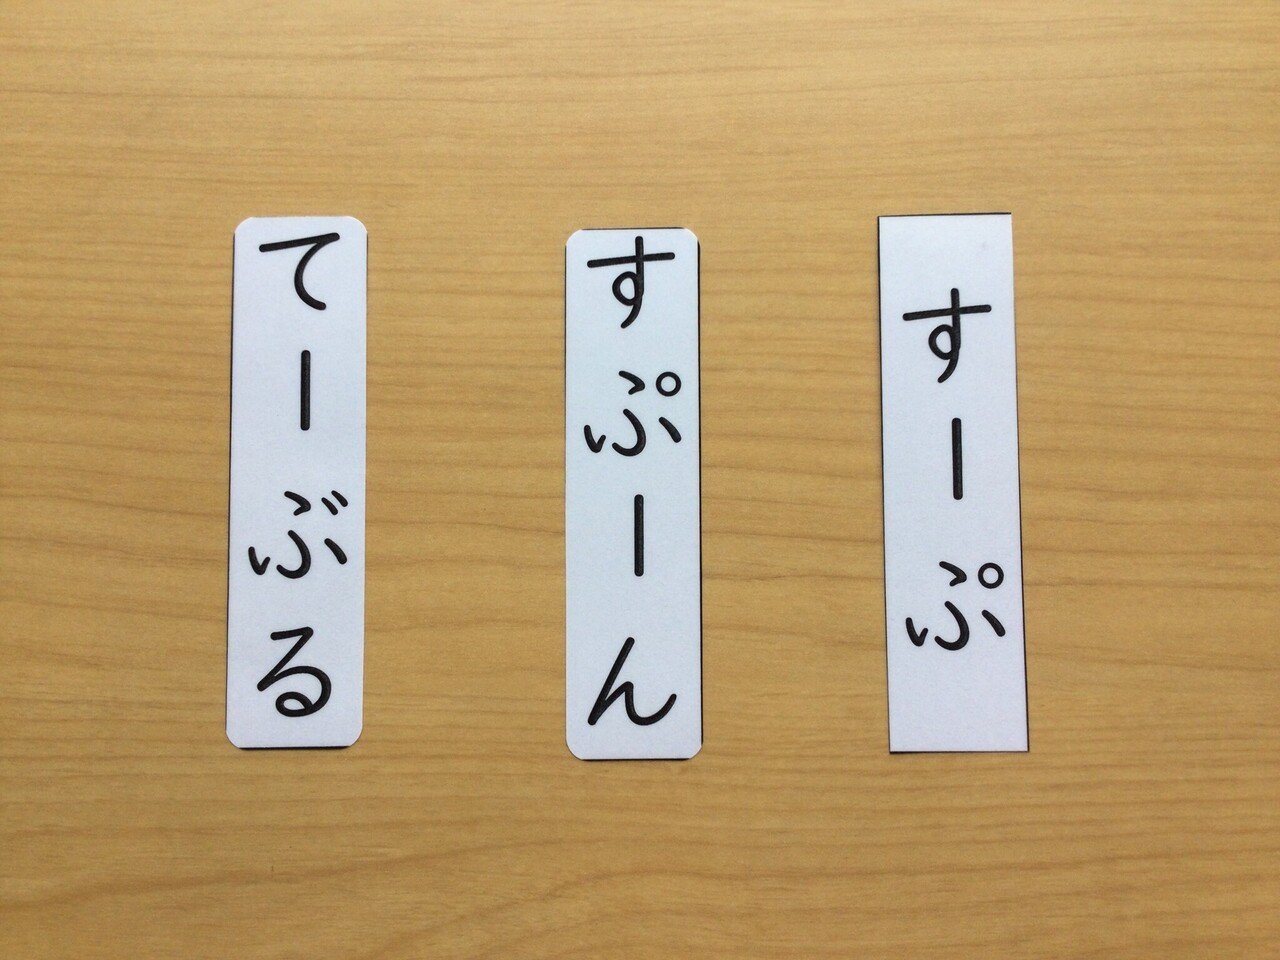 てーぶる
すぷーん
すーぷ